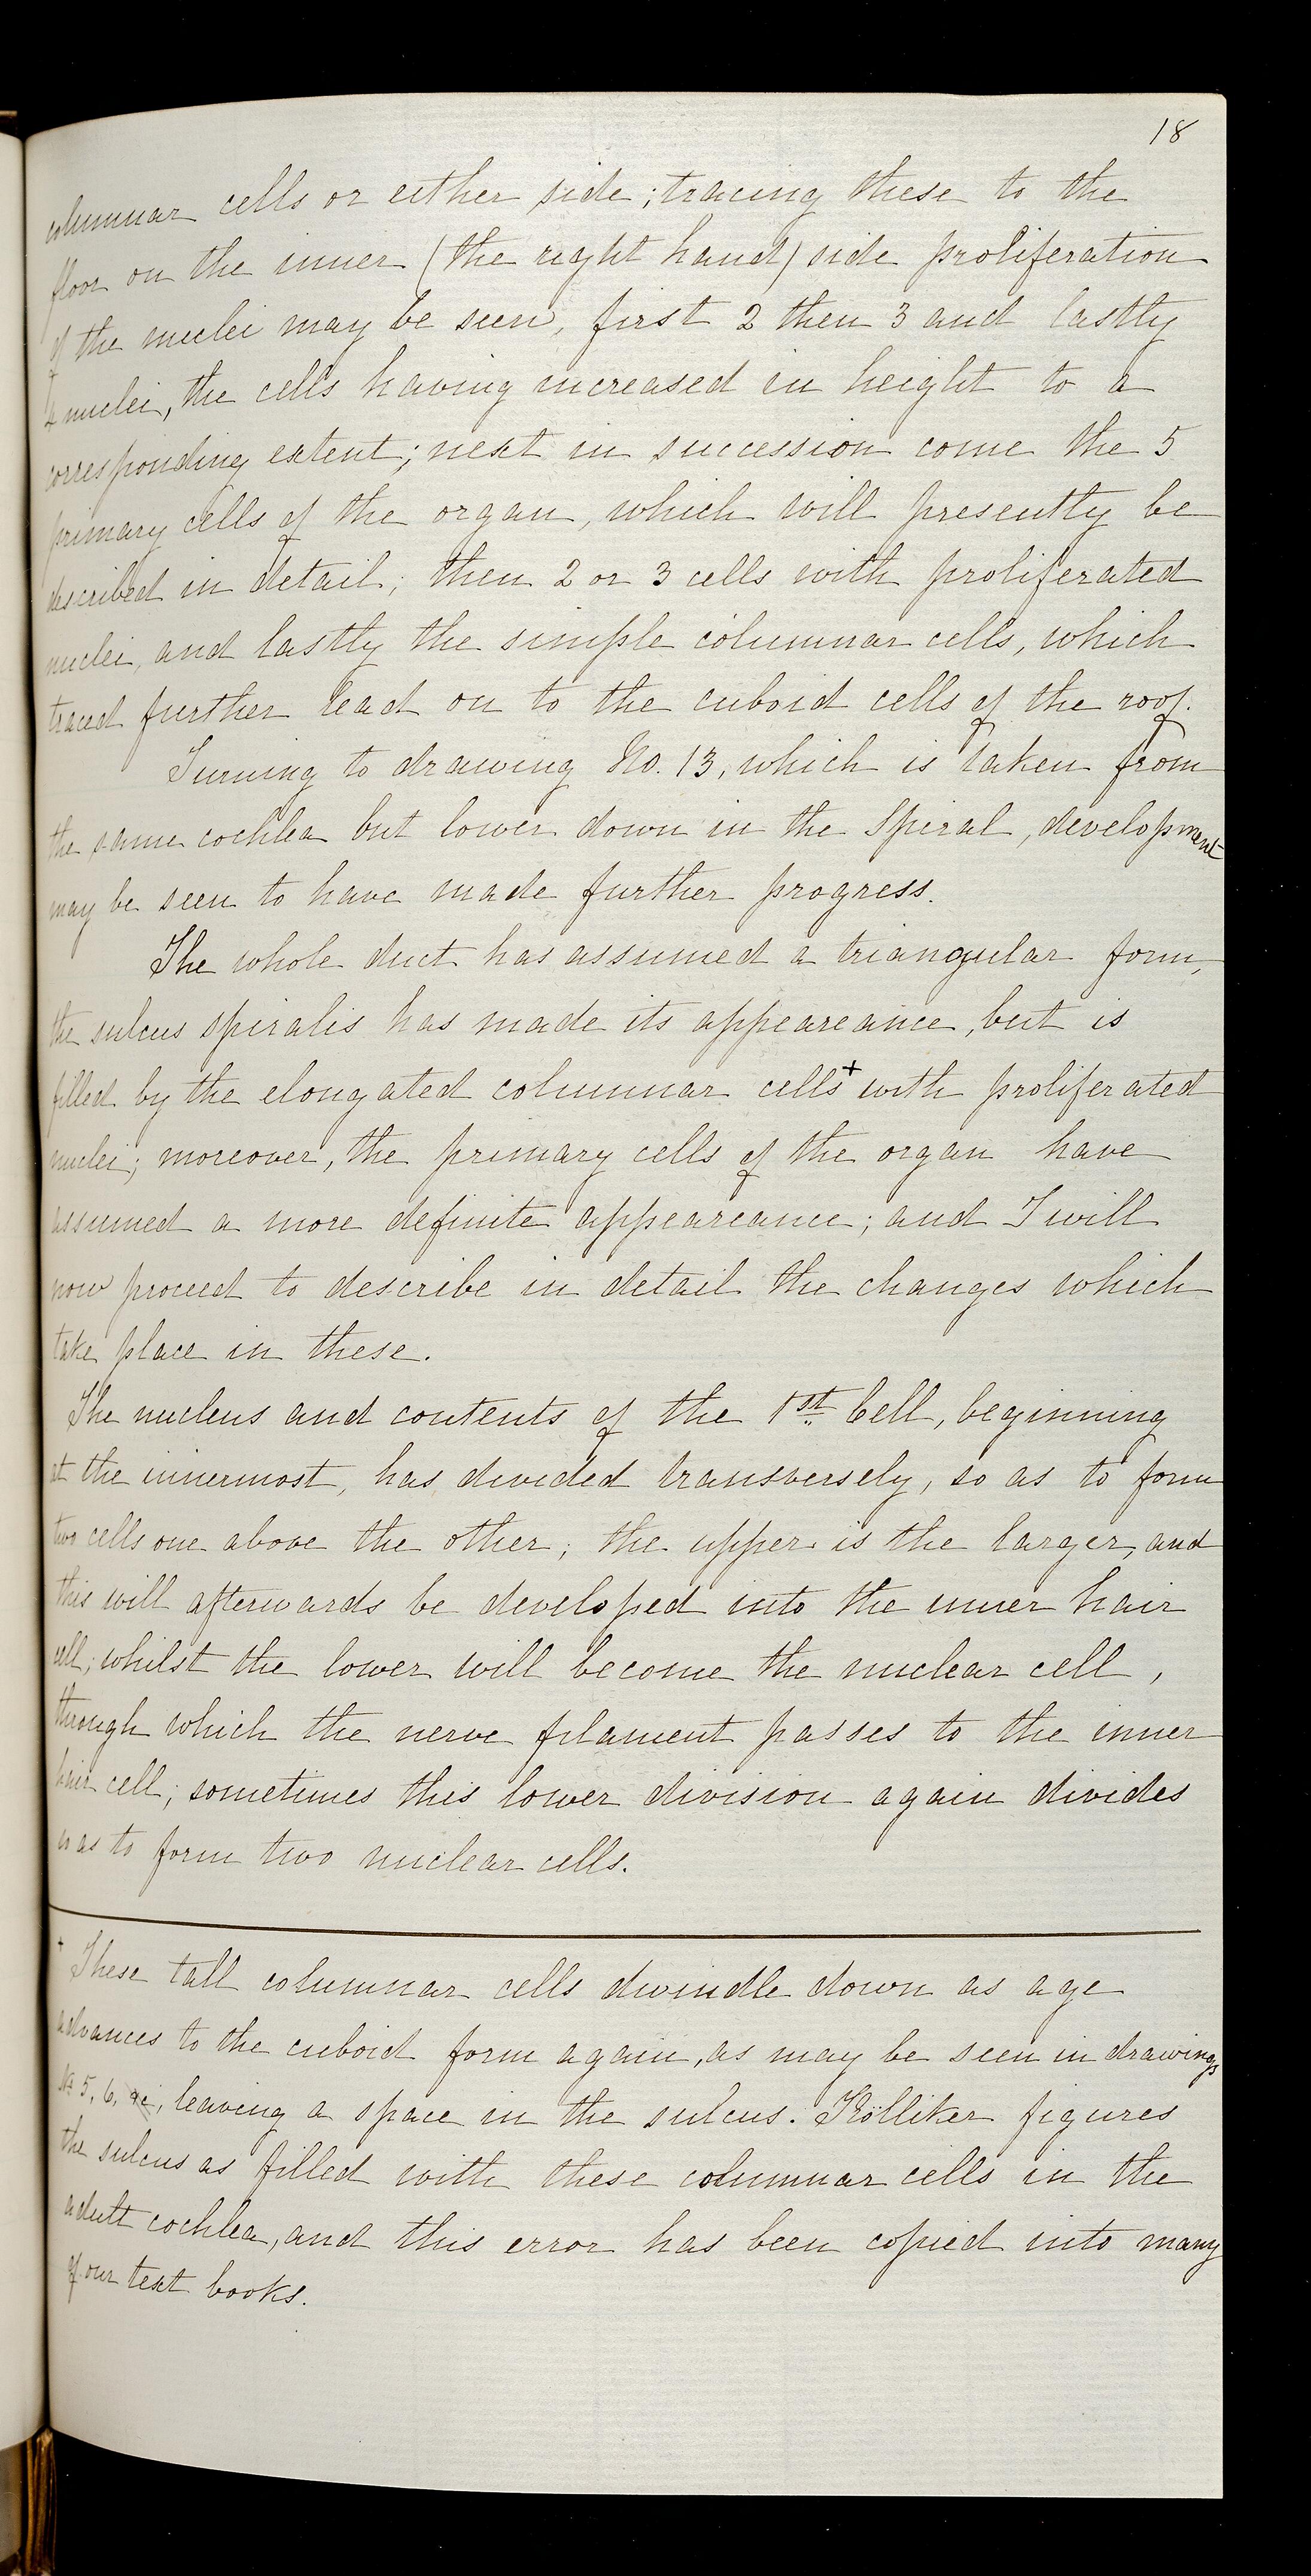 18
columnar cells or either side; tracing these to the
floor on the inner (the right hand) side proliferation
of the nuclei may be seen, first 2 then 3 and lastly
4 nuclei, the cells having increased in height to a
corresponding extent; next in succession come the 5
primary cells of the organ, which will presently be
described in detail; then 2 or 3 cells with proliferated
nuclei, and lastly the simple columnar cells, which
traced further lead on to the cuboid cells of the roof.
Turning to drawing No. 13, which is taken from
the same cochlea but lower down in the Spiral, development
may be seen to have made further progress.
The whole duct has assumed a triangular form,
the sulcus spiralis has made its appeareance, but is
filled by the elongated columnar cells+ with proliferated
nuclei; moreover, the primary cells of the organ have
assumed a more definite appeareance; and I will
now proceed to describe in detail the changes which
take place in these.
The nucleus and contents of the 1st Cell, beginning
at the innermost, has divided transversely, so as to form
two cells one above the other; the upper is the larger, and
this will afterwards be developed into the inner hair
cell; whilst the lower will become the nuclear cell,
through which the nerve filament passes to the inner
hair cell; sometimes this lower division again divides
so as to form two nuclear cells.
+ These tall columnar cells dwindle down as age
advances to the cuboid form again, as may be seen in drawings
No 5, 6, leaving a space in the sulcus. Kölliker figures
the sulcus as filled with these columnar cells in the
adult cochlea, and this error has been copied into many
of our text books.